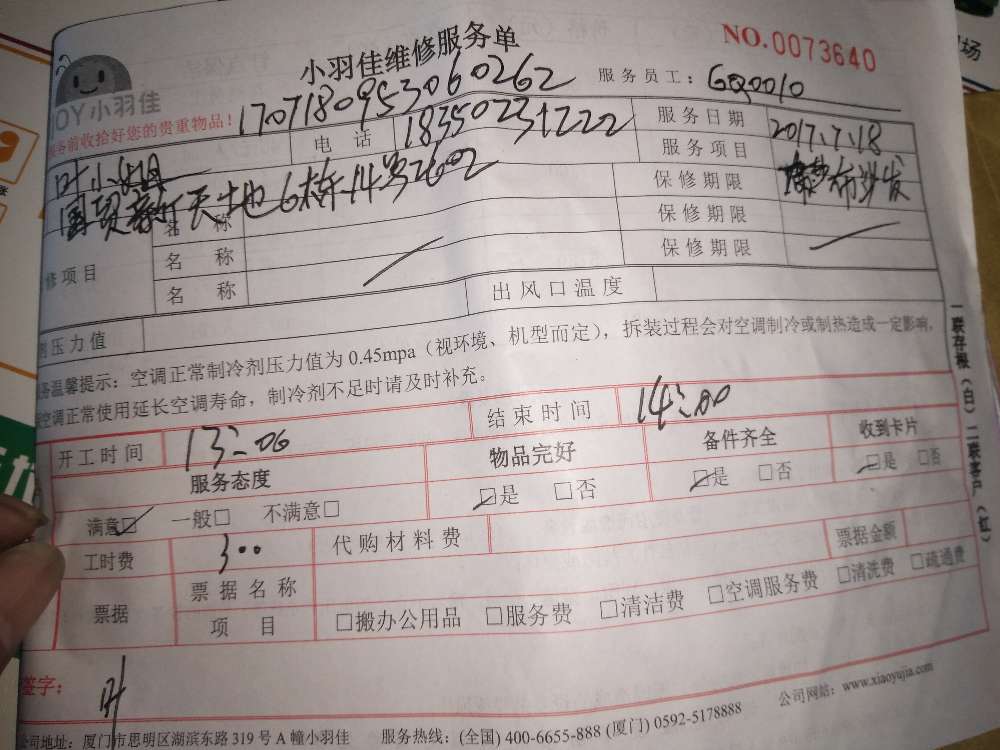 小羽佳维修服务单
NO.0073640
JOY小羽佳
服务前收拾好您的贵重物品！
170718095306 0262
服务员工：GQ0010
叶小姐
电话 18350231222
服务日期 2017.7.18
国贸新天地6栋14号2602
服务项目 布沙发
名称 保修期限
名称 保修期限
名称 保修期限
修项目
剂压力值
出风口温度
务温馨提示：空调正常制冷剂压力值为0.45mpa（视环境、机型而定），拆装过程会对空调制冷或制热造成一定影响，
空调正常使用延长空调寿命，制冷剂不足时请及时补充。
开工时间 13:06 结束时间 14:00
服务态度 物品完好 备件齐全 收到卡片
满意□ 一般□ 不满意□ □是 □否 □是 □否 □是 □否
工时费 300 代购材料费 票据金额
票据 票据名称
项目 □搬办公用品 □服务费 □清洁费 □空调服务费 □清洗费 □疏通费
签字：叶
公司网站：www.xiaoyujia.com
公司地址：厦门市思明区湖滨东路319号A幢小羽佳 服务热线：(全国) 400-6655-888 (厦门) 0592-5178888
一联存根（白）二联客户（红）